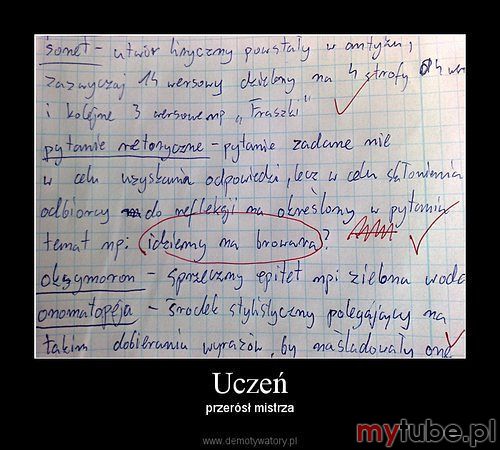 sonet - utwór liryczny powstały w antyku,
zazwyczaj 14 wersowy dzielony na 4 strofy 4
i kolejne 3 wersowe np „Fraszki"
pytanie retoryczne - pytanie zadane nie
w celu uzyskania odpowiedzi, lecz w celu skłonienia
odbiorcy do refleksji na określony w pytaniu
temat np: idziemy na browara?
oksymoron - sprzeczny epitet np: zielona woda
onomatopeja - środek stylistyczny polegający na
takim dobieraniu wyrazów, by naśladowały one
Uczeń
przerósł mistrza
www.demotywatory.pl
mytube.pl